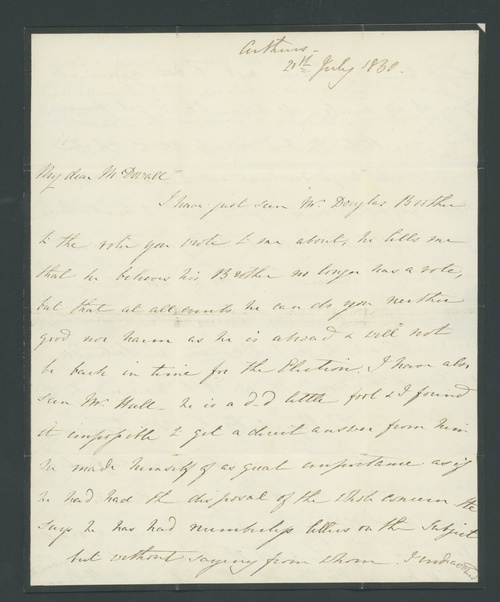 Arthurs –
20th July 1830.
My dear McDouall
I have just seen Mr. Douglas Brother
to the voter you wrote to me about, he tells me
that he believes his Brother no longer has a vote,
but that at all events he can do you neither
good nor harm as he is abroad & will not
be back in time for the Election. I have also
seen Mr. Hull – he is a d–d little fool & I found
it impossible to get a direct answer from him
he made himself of as great importance as if
he had had the disposal of the whole concern He
says he has had numberless letters on the subject
but without saying from whom. I endeavored